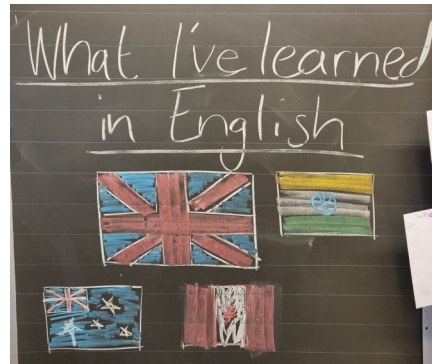 What I've learned
in English